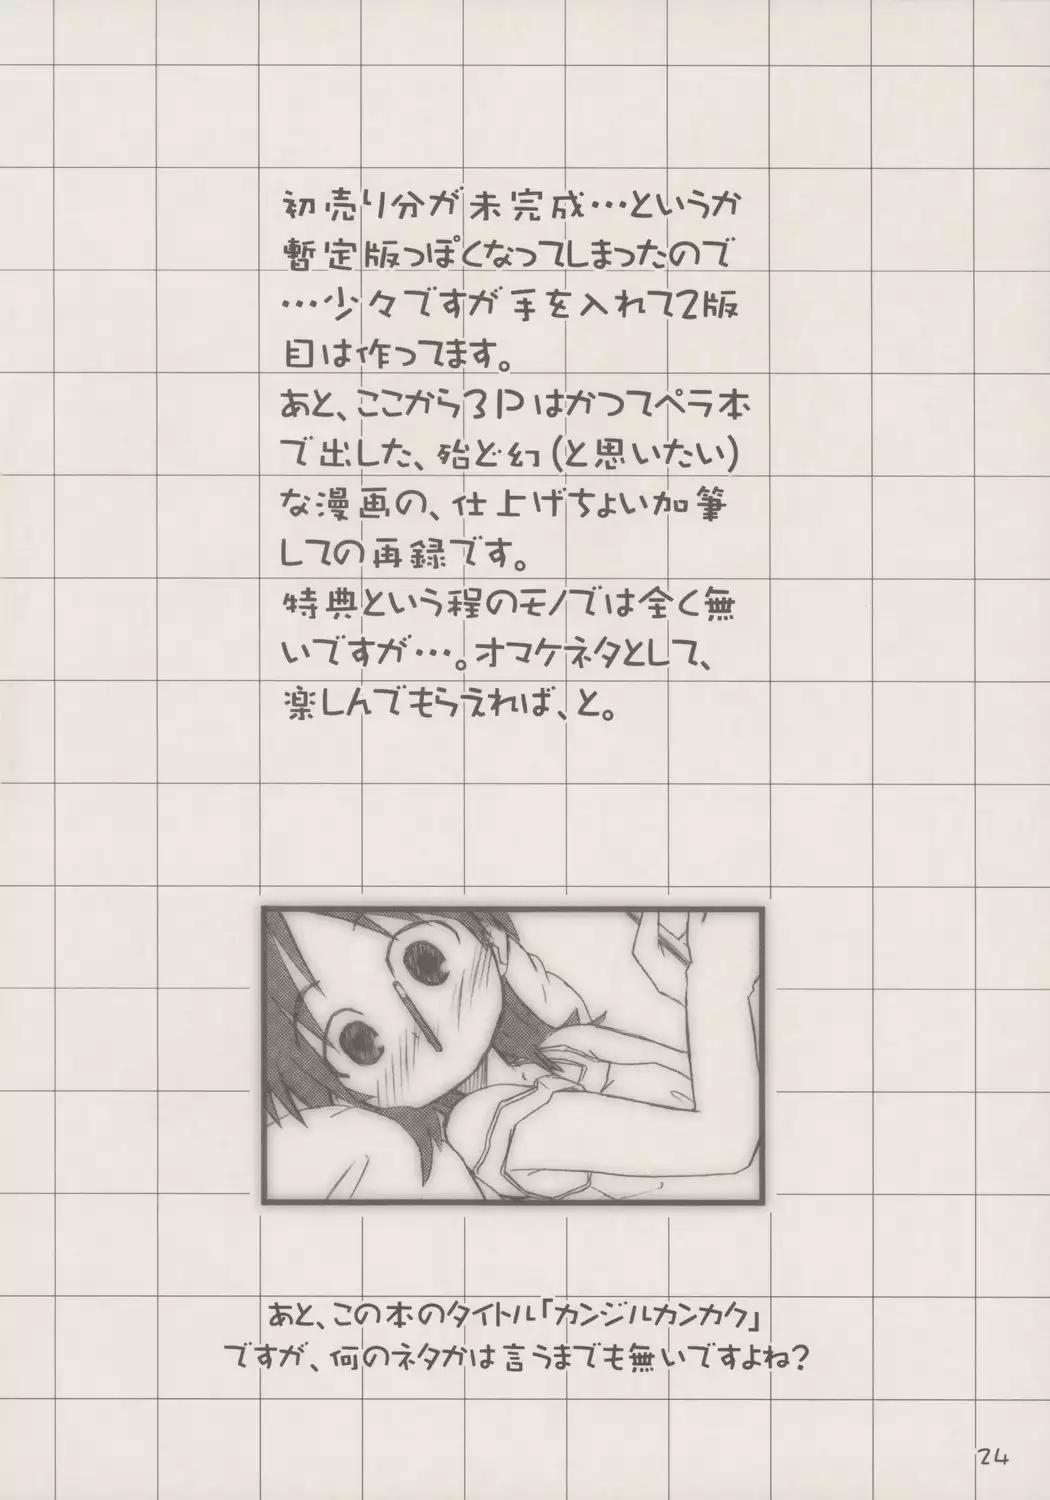 初売り分が未完成…というか
暫定版っぽくなってしまったので
…少々ですが手を入れて2版
目は作ってます。
あと、ここから3Pはかつてペラ本
で出した、殆ど幻(と思いたい)
な漫画の、仕上げちょい加筆
しての再録です。
特典という程のモノでは全く無
いですが…。オマケネタとして、
楽しんでもらえれば、と。
あと、この本のタイトル「カンジルカンカク」
ですが、何のネタかは言うまでも無いですよね?
24